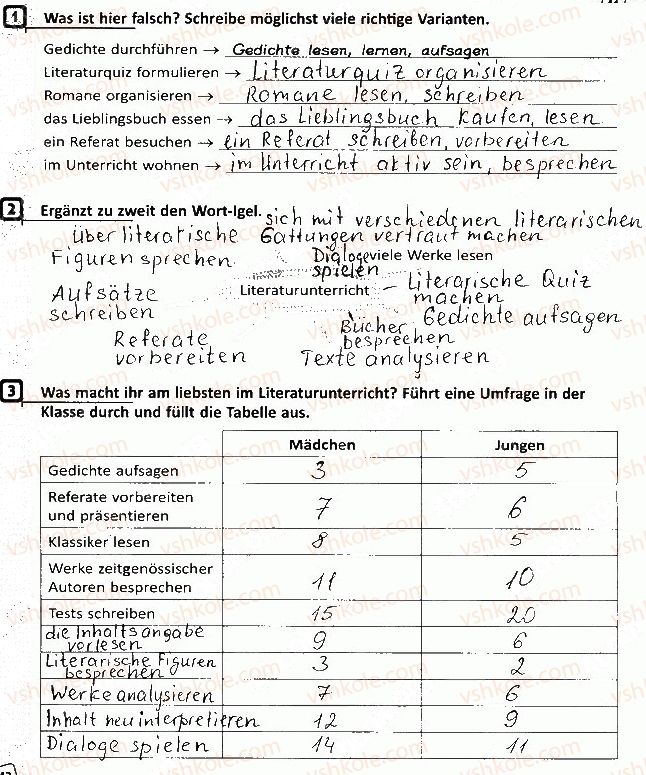 1 Was ist hier falsch? Schreibe möglichst viele richtige Varianten.
Gedichte durchführen → Gedichte lesen, lernen, aufsagen
Literaturquiz formulieren → Literaturquiz organisieren
Romane organisieren → Romane lesen, schreiben
das Lieblingsbuch essen → das Lieblingsbuch kaufen, lesen
ein Referat besuchen → ein Referat schreiben, vorbereiten
im Unterricht wohnen → im Unterricht aktiv sein, besprechen
2 Ergänzt zu zweit den Wort-Igel. sich mit verschiedenen literarischen
über literatische Gattungen vertraut machen
Figuren sprechen Dialoge viele Werke lesen
spielen
Aufsätze Literaturunterricht – Literarische Quiz
schreiben machen
Bücher Gedichte aufsagen
Referate besprechen
vorbereiten Texte analysieren
3 Was macht ihr am liebsten im Literaturunterricht? Führt eine Umfrage in der
Klasse durch und füllt die Tabelle aus.
Mädchen Jungen
Gedichte aufsagen 3 5
Referate vorbereiten
und präsentieren 7 6
Klassiker lesen 8 5
Werke zeitgenössischer
Autoren besprechen 11 10
Tests schreiben 15 20
die Inhaltsangabe
vorlesen 9 6
Literarische Figuren
besprechen 3 2
Werke analysieren 7 6
Inhalt neu interpretieren 12 9
Dialoge spielen 14 11
vshkole.com